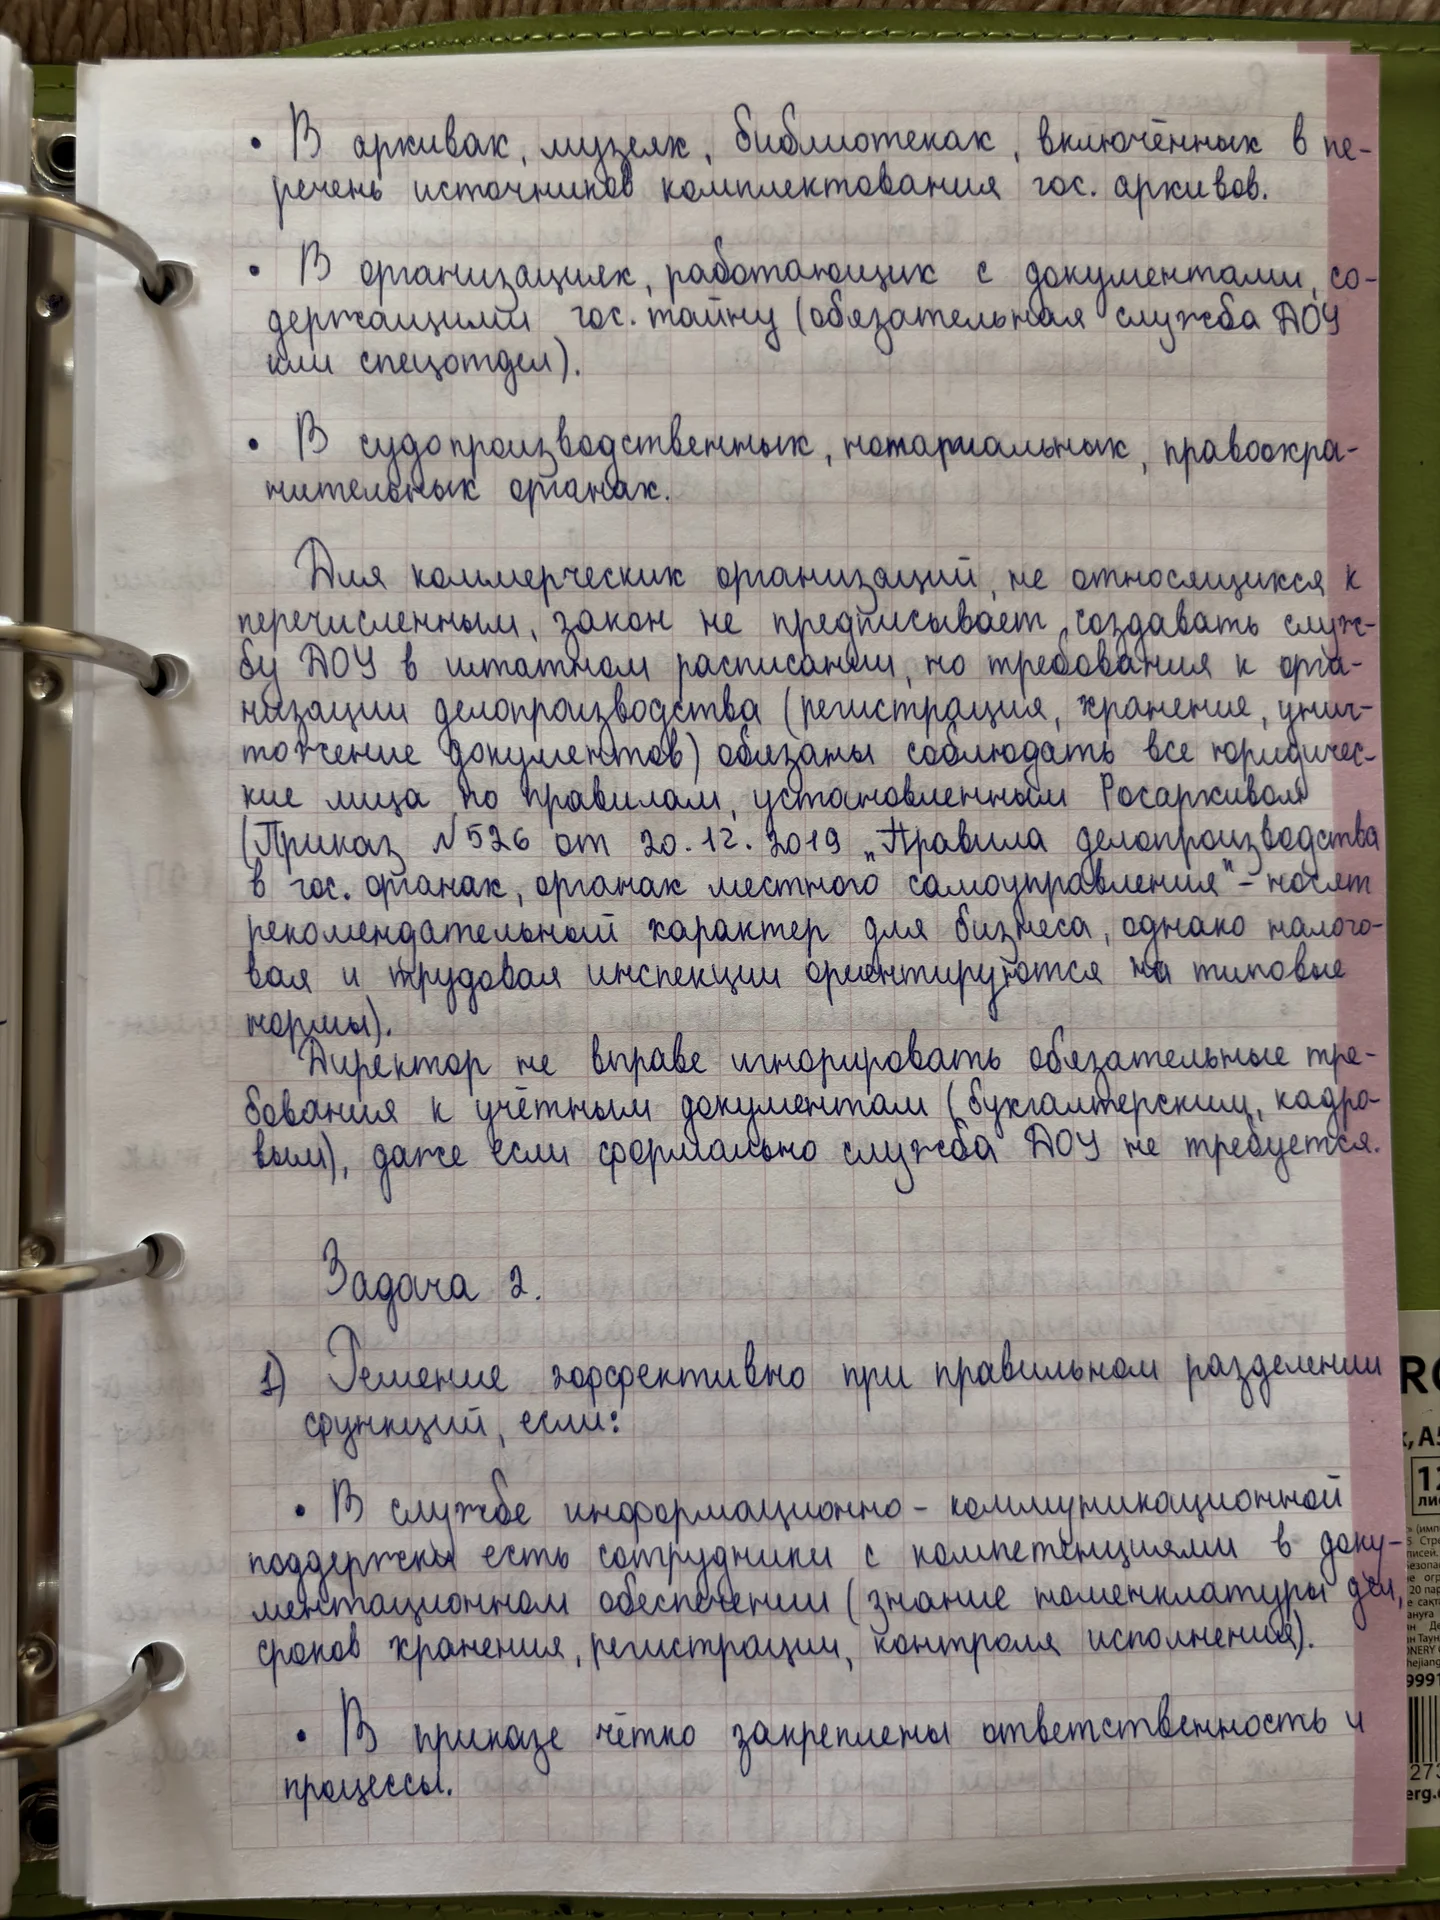 • В архивах, музеях, библиотеках, включённых в пе-
речень источников комплектования гос. архивов.
• В организациях, работающих с документами, со-
держащими гос. тайну (обязательная служба ДОУ
или спецотдел).
• В судопроизводственных, нотариальных, правоохра-
нительных органах.
Для коммерческих организаций, не относящихся к
перечисленным, закон не предписывает создавать служ-
бу ДОУ в штатном расписании, но требования к орга-
низации делопроизводства (регистрация, хранение, унич-
тожение документов) обязаны соблюдать все юридичес-
кие лица по правилам, установленным Росархивом
(Приказ №526 от 20.12.2019 „Правила делопроизводства
в гос. органах, органах местного самоуправления" - носят
рекомендательный характер для бизнеса, однако налого-
вая и трудовая инспекции ориентируются на типовые
нормы).
Директор не вправе игнорировать обязательные тре-
бования к учётным документам (бухгалтерским, кадро-
вым), даже если формально служба ДОУ не требуется.
Задача 2.
1) Решение эффективно при правильном разделении
функций, если:
• В службе информационно - коммуникационной
поддержки есть сотрудники с компетенциями в доку-
ментационном обеспечении (знание номенклатуры дел,
сроков хранения, регистрации, контроля исполнения).
• В приказе чётко закреплены ответственность и
процессы.